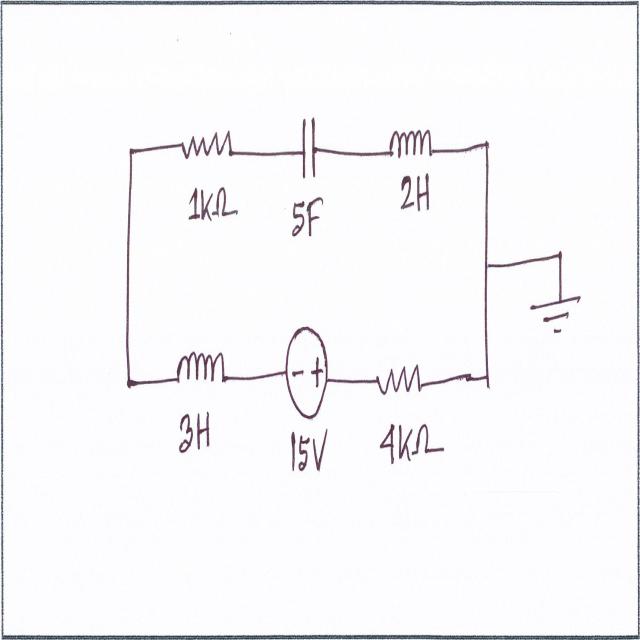 1KΩ 5F 2H
- +
3H 15V 4KΩ